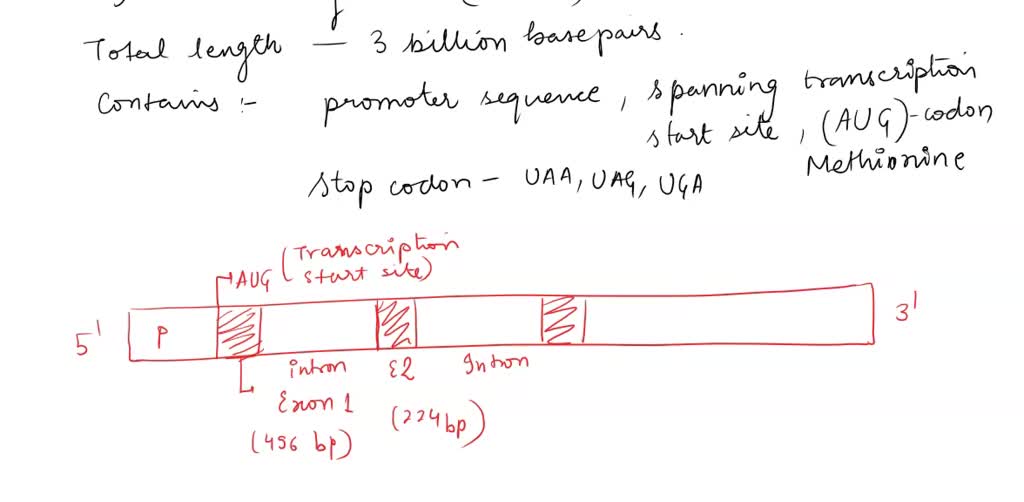 Total length — 3 billion basepairs.
Contains :- promoter sequence, spanning transcription
start site, (AUG)-codon
Methionine
Stop codon - UAA, UAG, UGA
AUG (Transcription
start site)
5' P 3'
intron E2 Intron
Exon 1 (224 bp)
(456 bp)